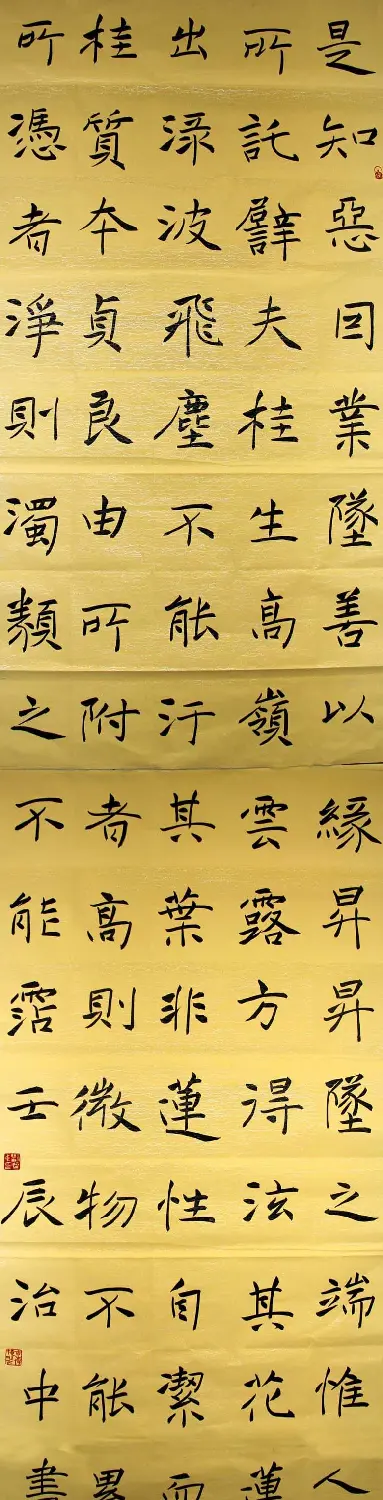 是知惡囙業墜善以緣昇昇墜之端惟人
所託譬夫桂生高嶺雲露方得泫其花蓮
出渌波飛塵不能汙其葉非蓮性自潔而
桂質夲貞良由所附者高則微物不能累
所憑者淨則濁類之不能霑壬辰治中書